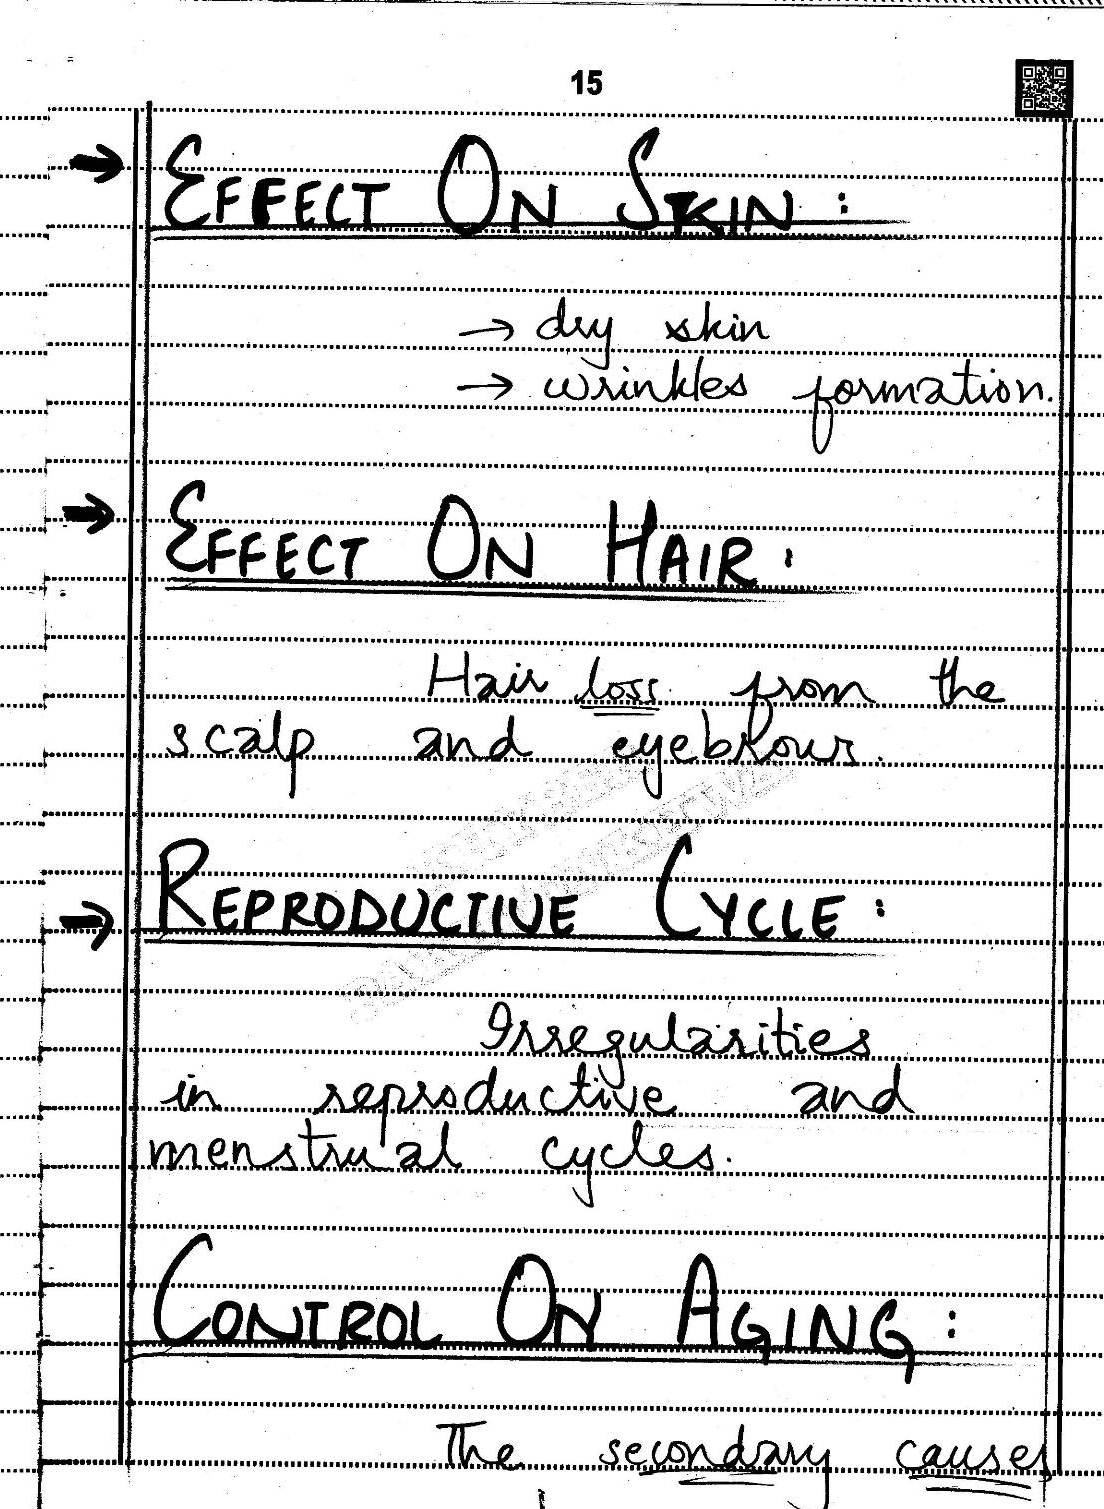 15
→ EFFECT ON SKIN:
→ dry skin
→ wrinkles formation.
→ EFFECT ON HAIR:
Hair loss from the
scalp and eyebrows.
→ REPRODUCTIVE CYCLE:
Irregularities
in reproductive and
menstrual cycles.
CONTROL ON AGING:
The secondary causes